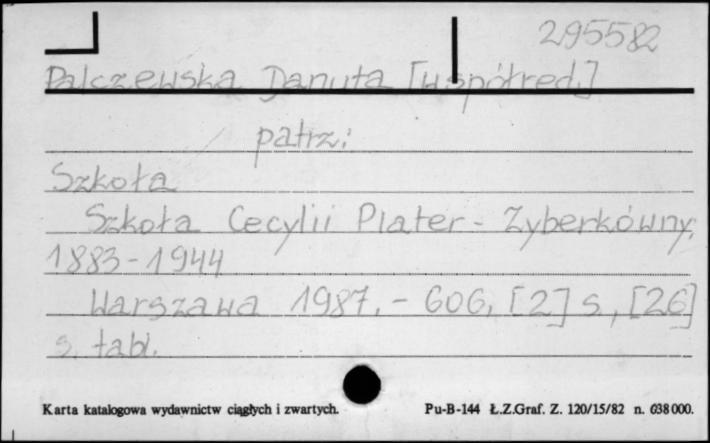 295582
Palczewska Danuta [współred.]
patrz:
Szkoła
Szkoła Cecylii Plater-Zyberkówny,
1883-1944
Warszawa 1987. - 606, [2] s, [26]
s. tabl.
Karta katalogowa wydawnictw ciągłych i zwartych. Pu-B-144 Ł.Z.Graf. Z. 120/15/82 n. 638000.